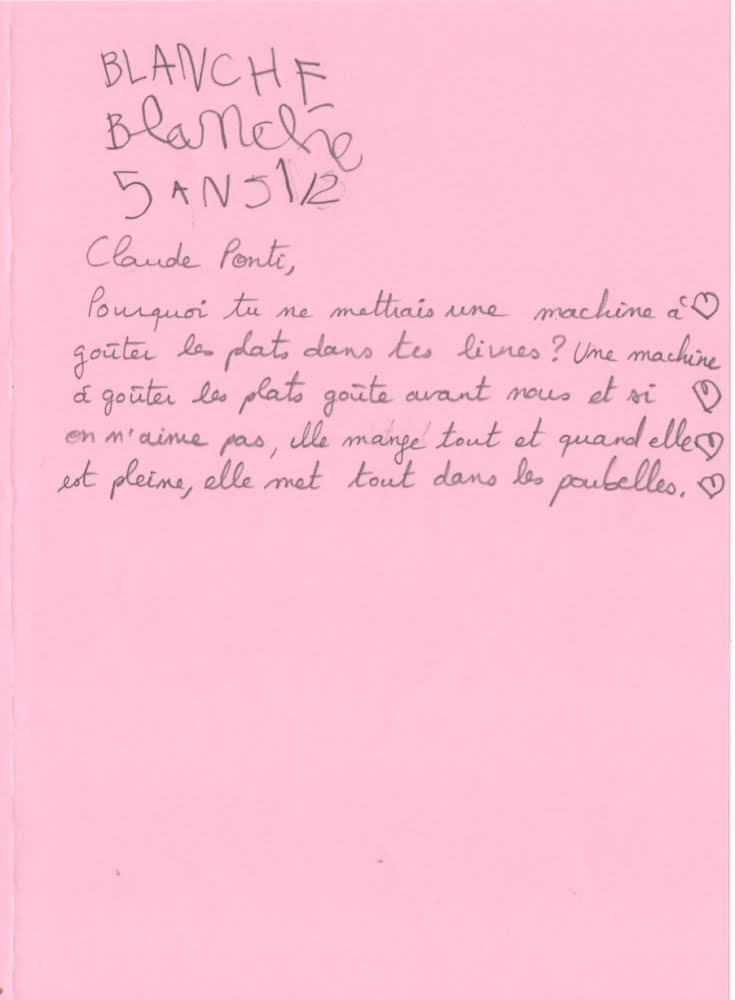 BLANCHE
Blanche
5 ANS 1/2
Claude Ponti,
Pourquoi tu ne mettrais une machine à
goûter les plats dans tes livres ? Une machine
à goûter les plats goûte avant nous et si
on n'aime pas, elle mange tout et quand elle
est pleine, elle met tout dans les poubelles.